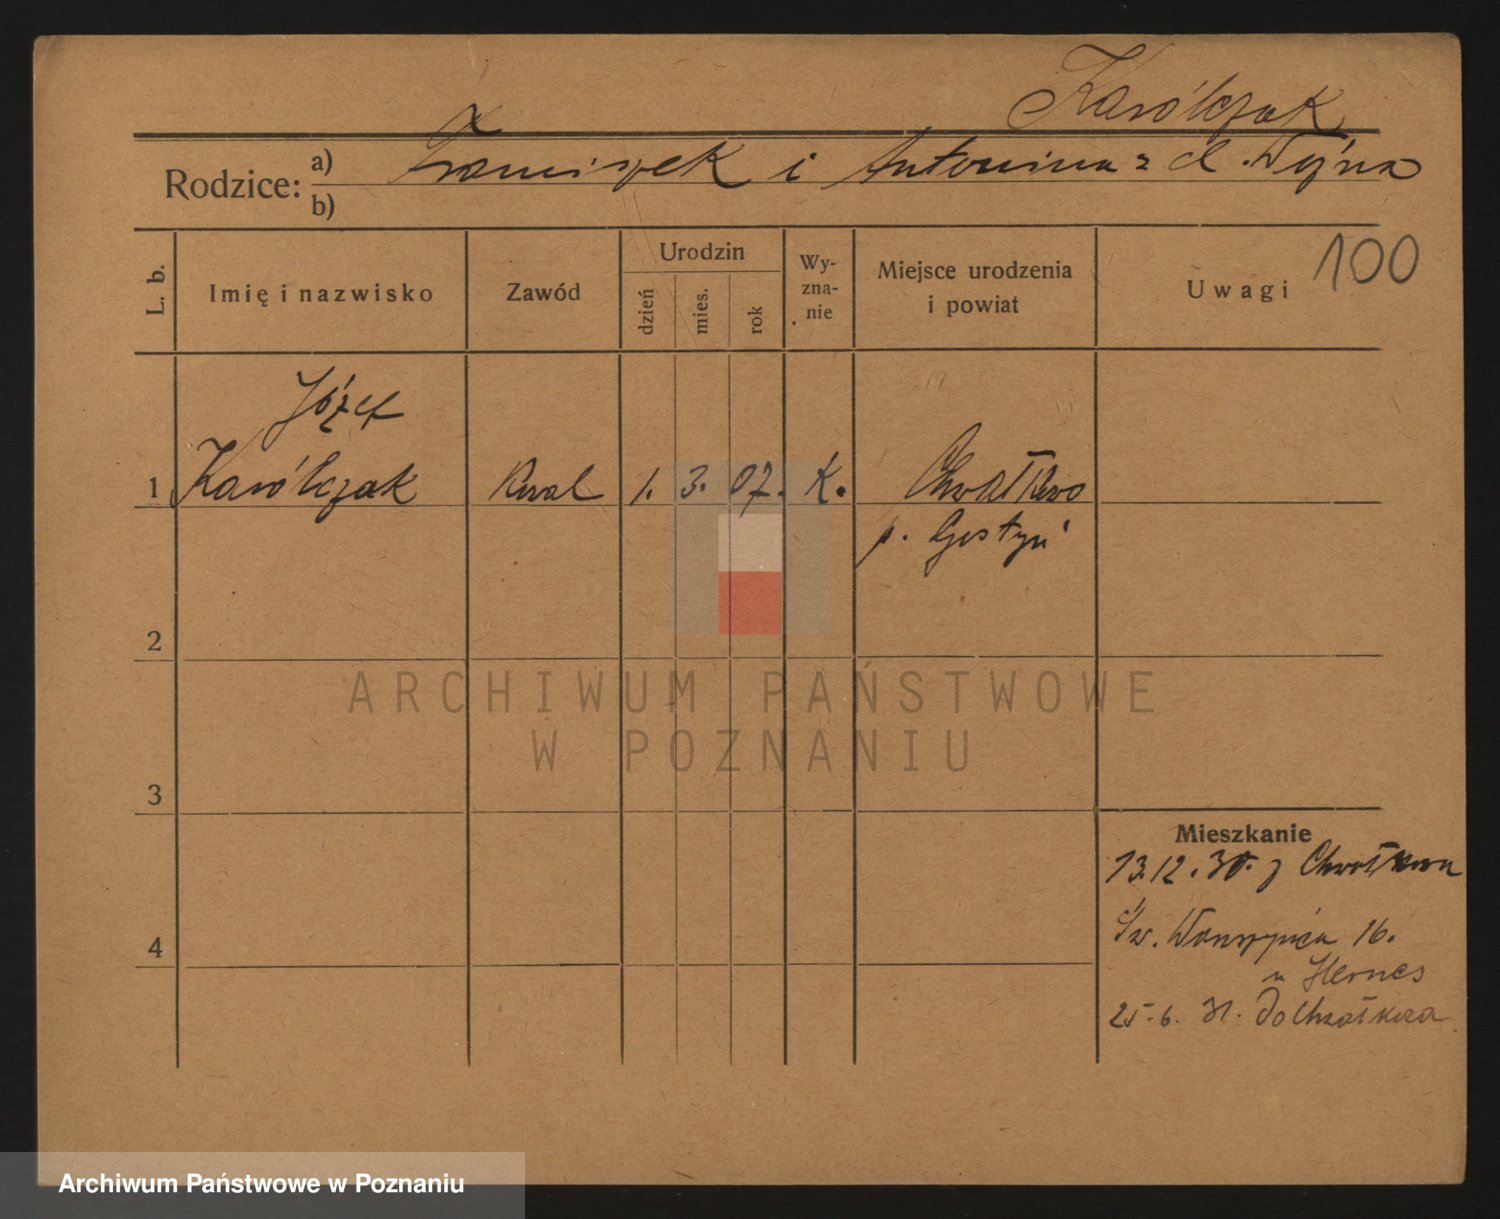 Karólczak
Rodzice: a) Franciszek i Antonina z d. Wojna
b)
L. b.
Imię i nazwisko
Zawód
Urodzin
dzień
mies.
rok
Wy-
zna-
nie
Miejsce urodzenia
i powiat
Uwagi
100
Józef
1 Karólczak 1. 3. 07. K. Chwałkowo
p. Gostyń
2
3
4
Mieszkanie
13.12.30. z Chwałkowa
Św. Wawrzyńca 16.
u
25.6. 31. do Chwałkowa
ARCHIWUM PAŃSTWOWE
W POZNANIU
Archiwum Państwowe w Poznaniu